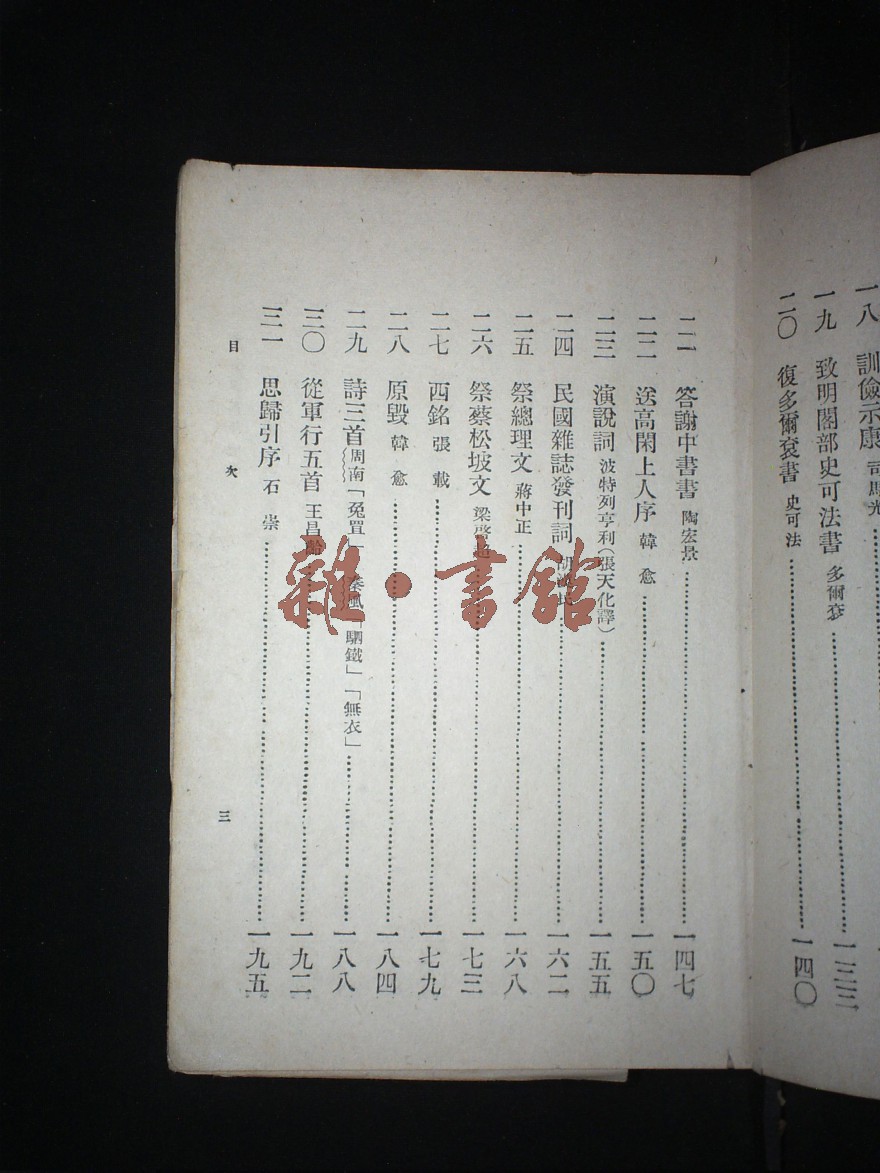 一八 訓儉示康 司馬光
一九 致明閣部史可法書 多爾袞 一三三
二〇 復多爾袞書 史可法 一四〇
二一 答謝中書書 陶宏景 一四七
二二 送高閑上人序 韓愈 一五〇
二三 演說詞 波特列亨利(張天化譯) 一五五
二四 民國雜誌發刊詞 胡漢民 一六二
二五 祭總理文 蔣中正 一六八
二六 祭蔡松坡文 梁啓超 一七三
二七 西銘 張載 一七九
二八 原毀 韓愈 一八四
二九 詩三首 周南「兔罝」 秦風「駟鐵」「無衣」 一八八
三〇 從軍行五首 王昌齡 一九二
三一 思歸引序 石崇 一九五
目次 三
雜·書館